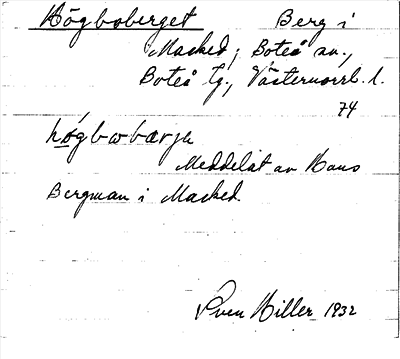 Högboberget Berg i
Masked, Boteå sn.,
Boteå tg., Västernorrl. l.
74
högbωbærje
Meddelat av Hans
Bergman i Masked.
Sven Hiller 1932